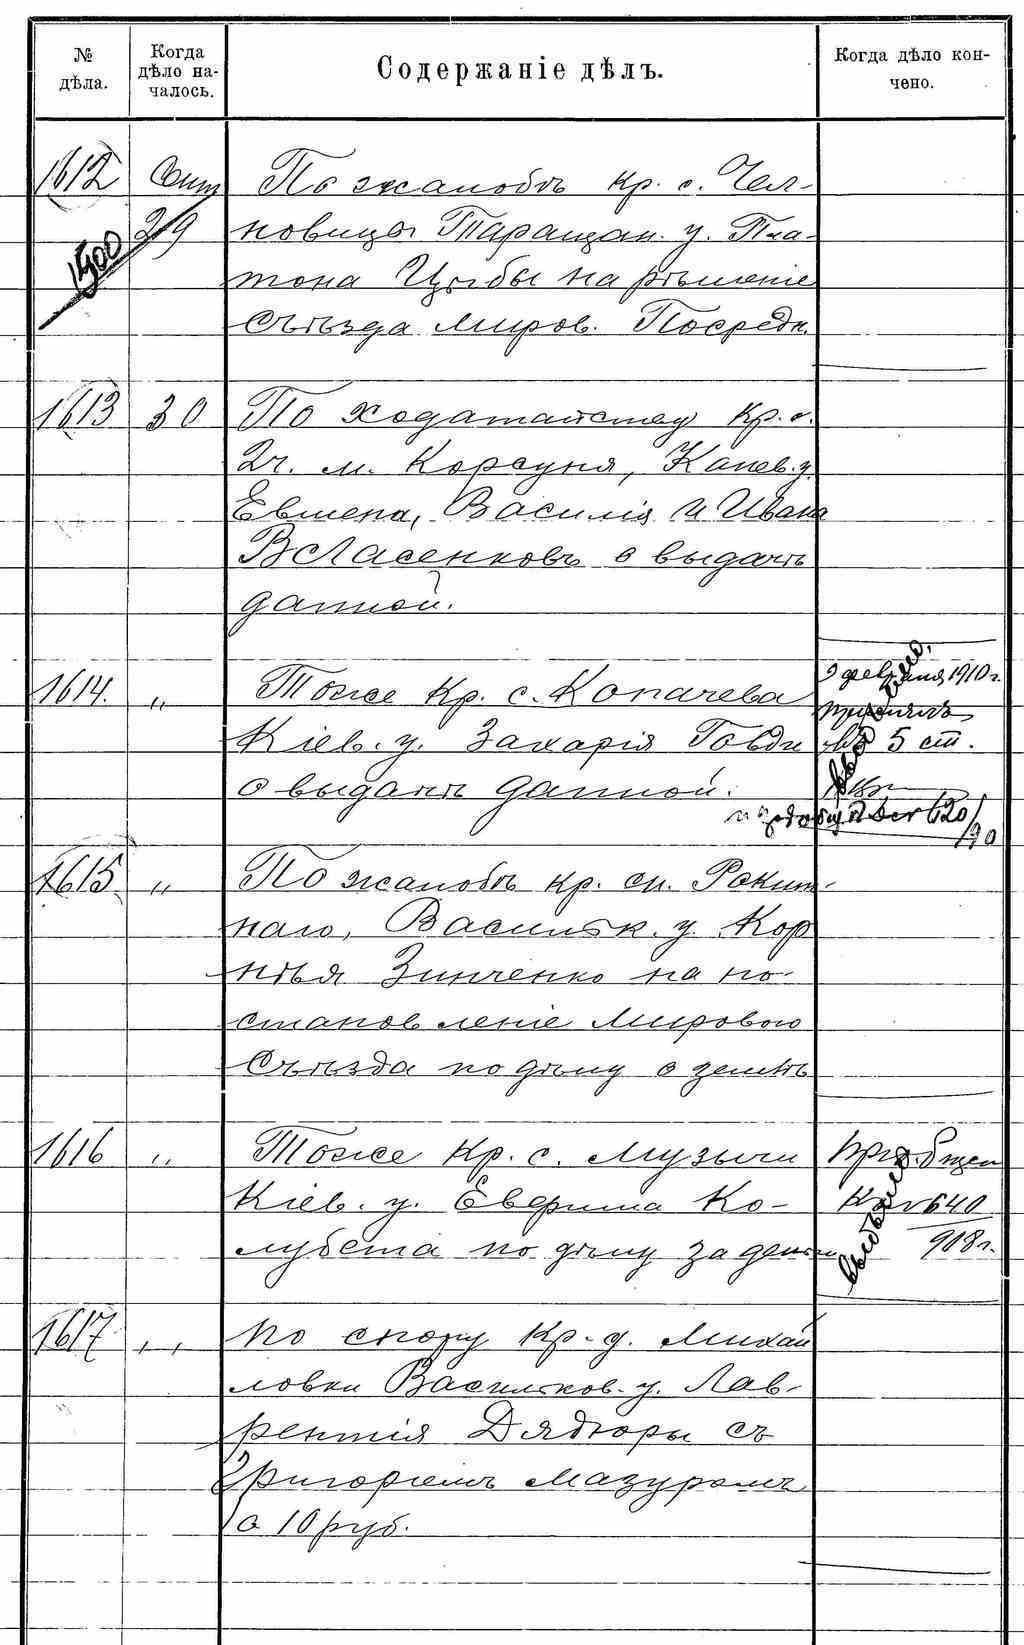 № дѣла.
Когда дѣло на-
чалось.
Содержаніе дѣлъ.
Когда дѣло кон-
чено.
1612
Сент
29
1500
По жалобѣ кр. с. Чел-
новицы Таращан. у. Пла-
тона Цыбы на рѣшеніе
Съѣзда Миров. Посредн.
1613
30
По ходатайству кр. с.
2 ч. м. Корсуня, Канев. у.
Евмена, Василія и Ивана
Власенковъ о выдачѣ
данной.
1614.
"
Тоже Кр. с. Копачева
Кіев. у. Захарія Говди
о выдачѣ данной.
9 февраля 1910 г.
5 ст.
620/90
1615
"
По жалобѣ кр. сл. Рокит-
наго, Васильк. у. Кор
нѣя Зинченко на по-
становленіе Мирового
Съѣзда по дѣлу о землѣ
1616
"
Тоже Кр. с. Музычи
Кіев. у. Еврима Ко-
лубета по дѣлу за деньги
Пріобщен
к № 640
908 г.
1617
"
По спору Кр. д. Михай
ловки Васильков. у. Лав-
рентія Дядюры съ
Григоріемъ Мазуромъ
о 10 руб.